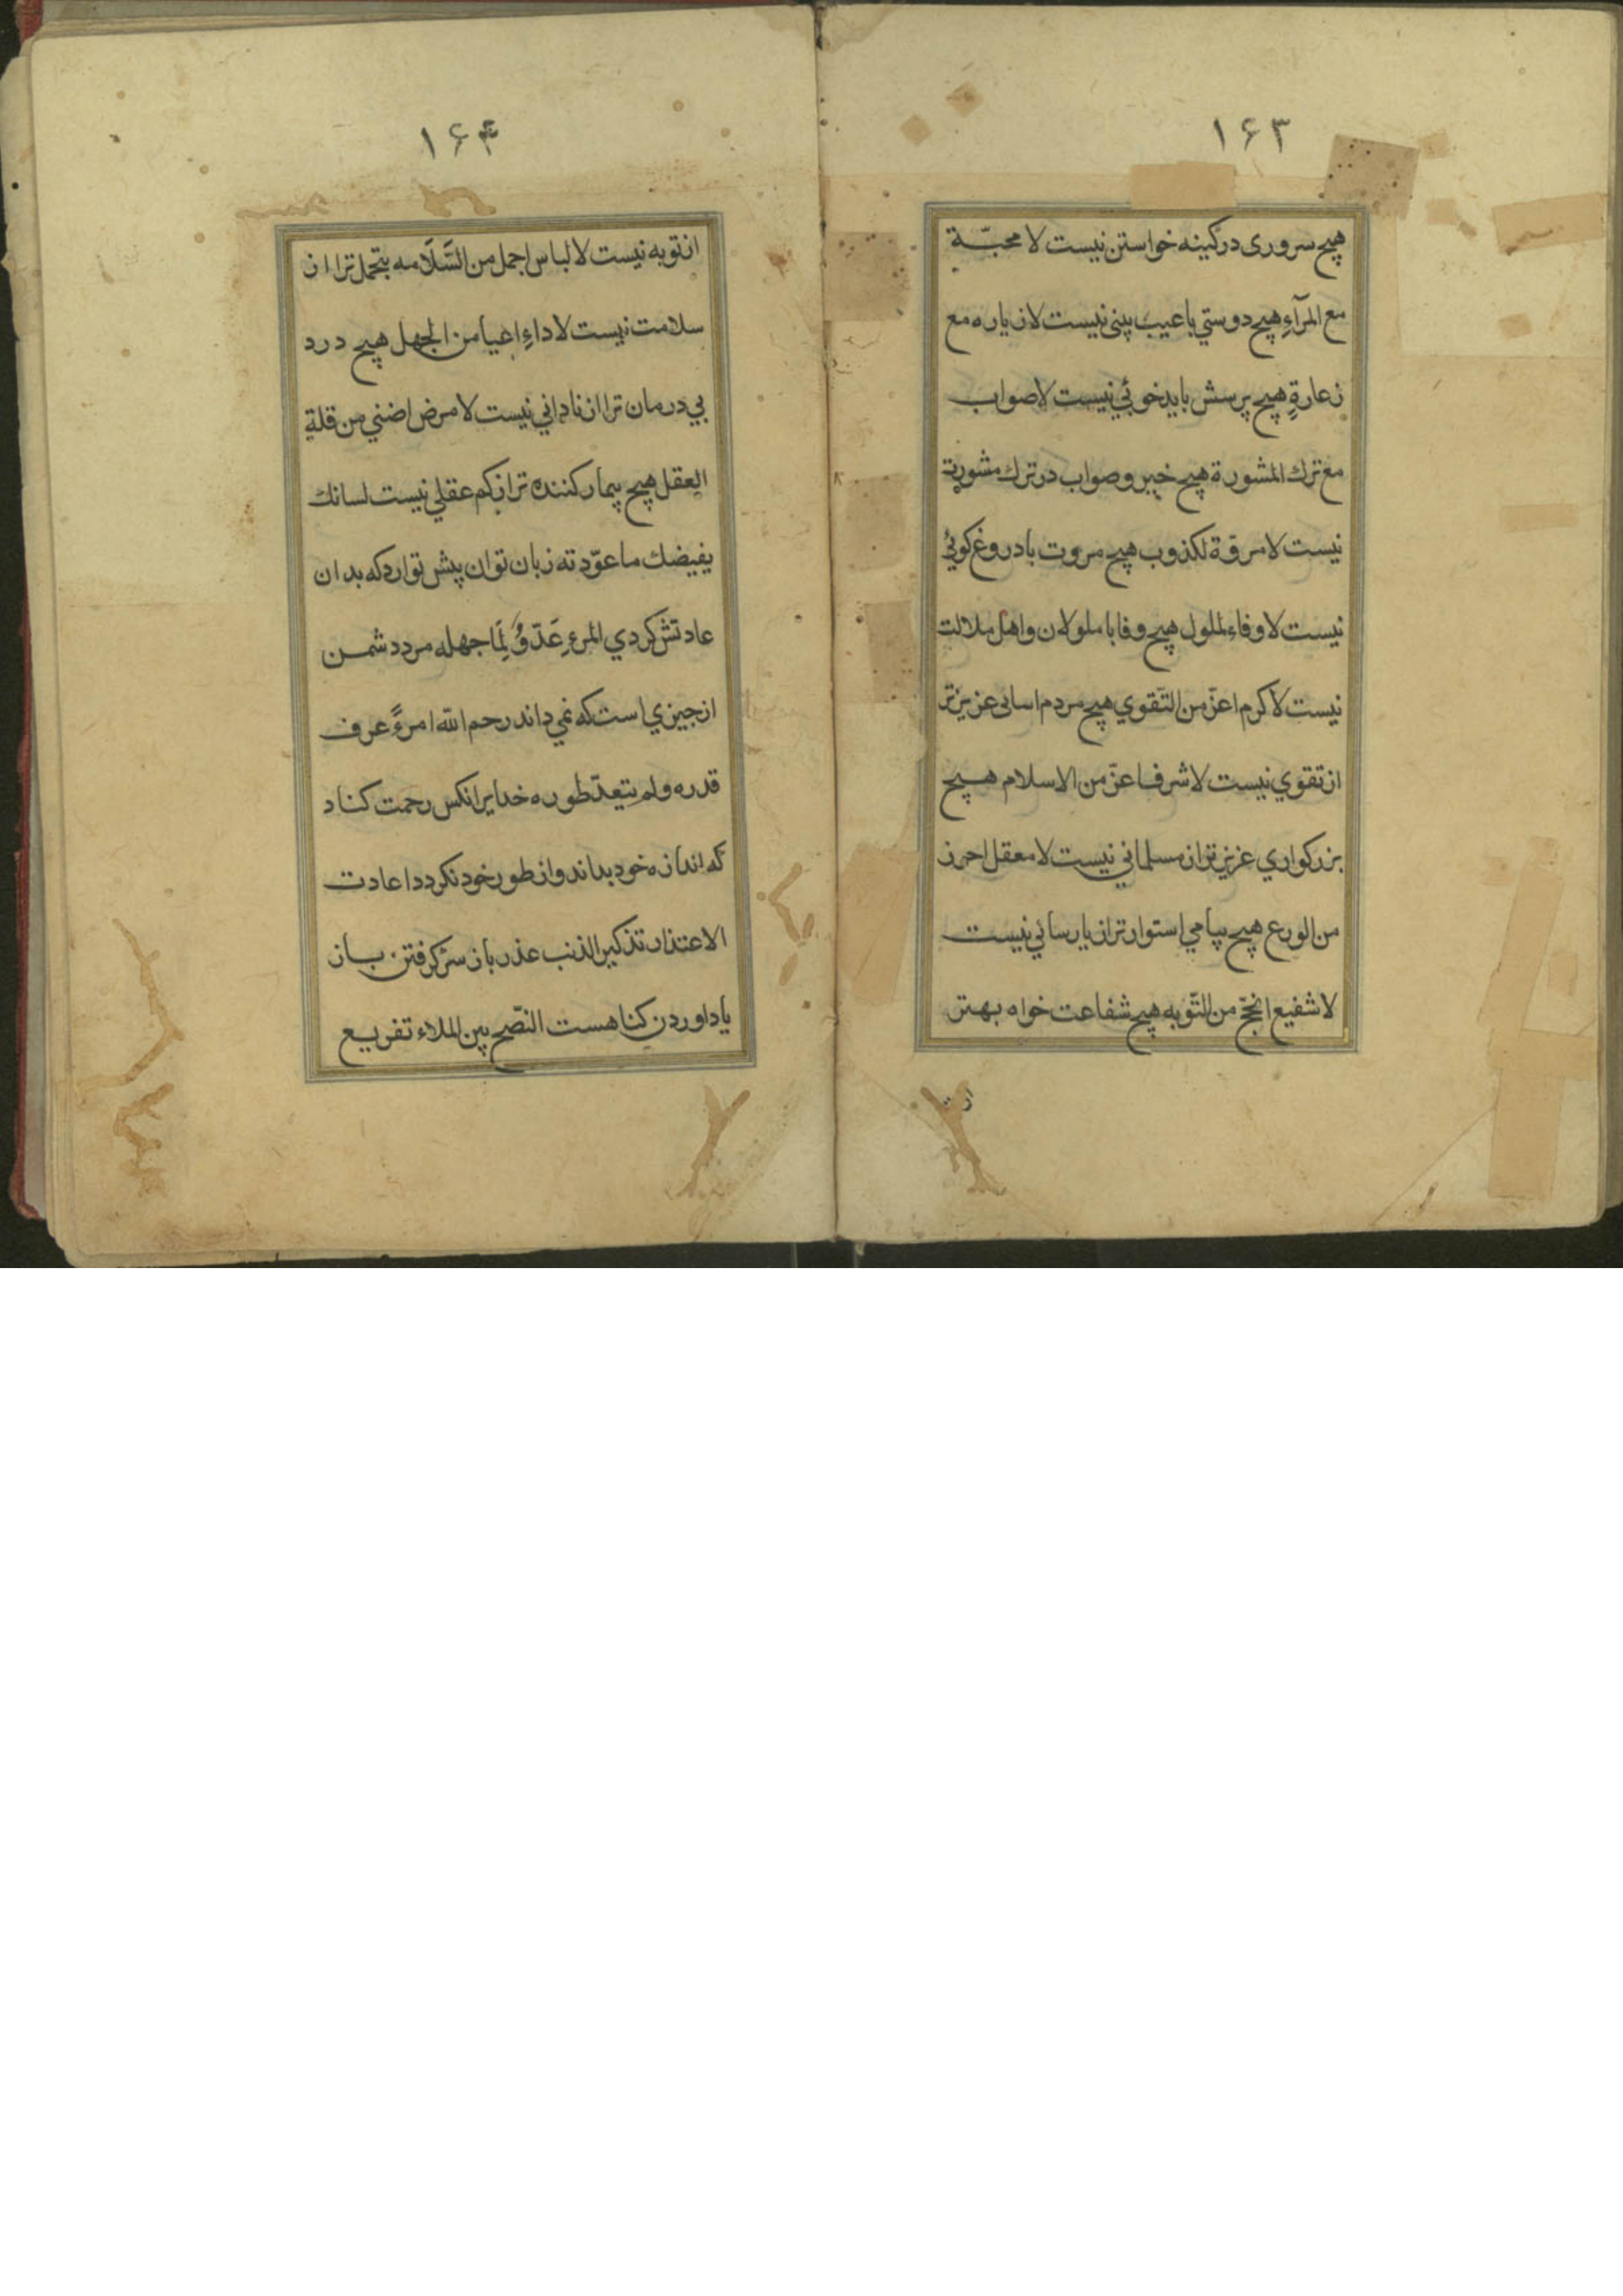 ۱۶۳
هیچ سروری در کینه خواستن نیست لا محبّة
مع المرآءِ هیچ دوستي با عیب بینی نیست لا زیاره مع
زعارةٍ هیچ پرسش با بدخوئي نیست لا صواب
مع ترك المشورة هیچ خیر و صواب در ترك مشورت
نیست لا مروّة لكذوب هیچ مروت با دروغ کوئي
نیست لا وفاء لملول هیچ وفا با ملولان و اهل ملالت
نیست لا کرم اعزّ من التّقوي هیچ مردم اسانی عزیزتر
از تقوي نیست لا شرف اعزّ من الاسلام هیچ
بزرکواري عزیزتر از مسلماني نیست لا معقل احرز
من الورع هیچ پیاهي استوارتر از پارسائي نیست
لا شفیع انجّح من التّوبه هیچ شفاعت خواه بهتر
۱۶۴
از توبه نیست لا لباس اجمل من السَّلَامه بتجمل تر از
سلامت نیست لا داءِ اعیا من الجهل هیچ درد
بي درمان تر از ناداني نیست لا مرض اضني من قلةِ
العقل هیچ بیمار کننده تر از کم عقلي نیست لسانك
یفیضك ما عوّدته زبان تو ان پیش تو ارد که بدان
عادتش کردي المرءِ عَدّوُ لِمَا جهله مرد دشمن
از جیزي است که نمي داند رحم الله امرءً عرف
قدره و لم یتعدّ طوره خدایرا انکس رحمت کناد
که اندازه خود بداند و از طور خود نکردد اعادت
الاعتذار تذکیر الذنب عذر باز سر کرفتن باز
یاد اوردن کناهست النصّح بین الملاء تفریع